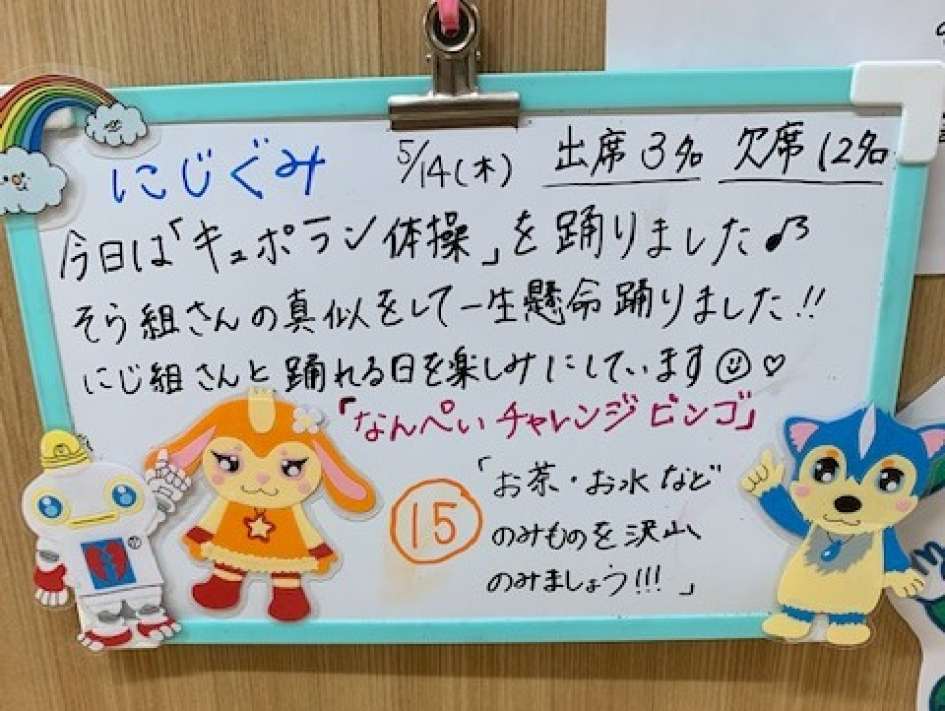 にじぐみ 5/14(木) 出席3名 欠席12名
今日は「キュポラン体操」を踊りました♪
そら組さんの真似をして一生懸命踊りました!!
にじ組さんと踊れる日を楽しみにしています☺♡
「なんぺいチャレンジビンゴ」
⑮ 「お茶・お水など
のみものを沢山
のみましょう!!!」